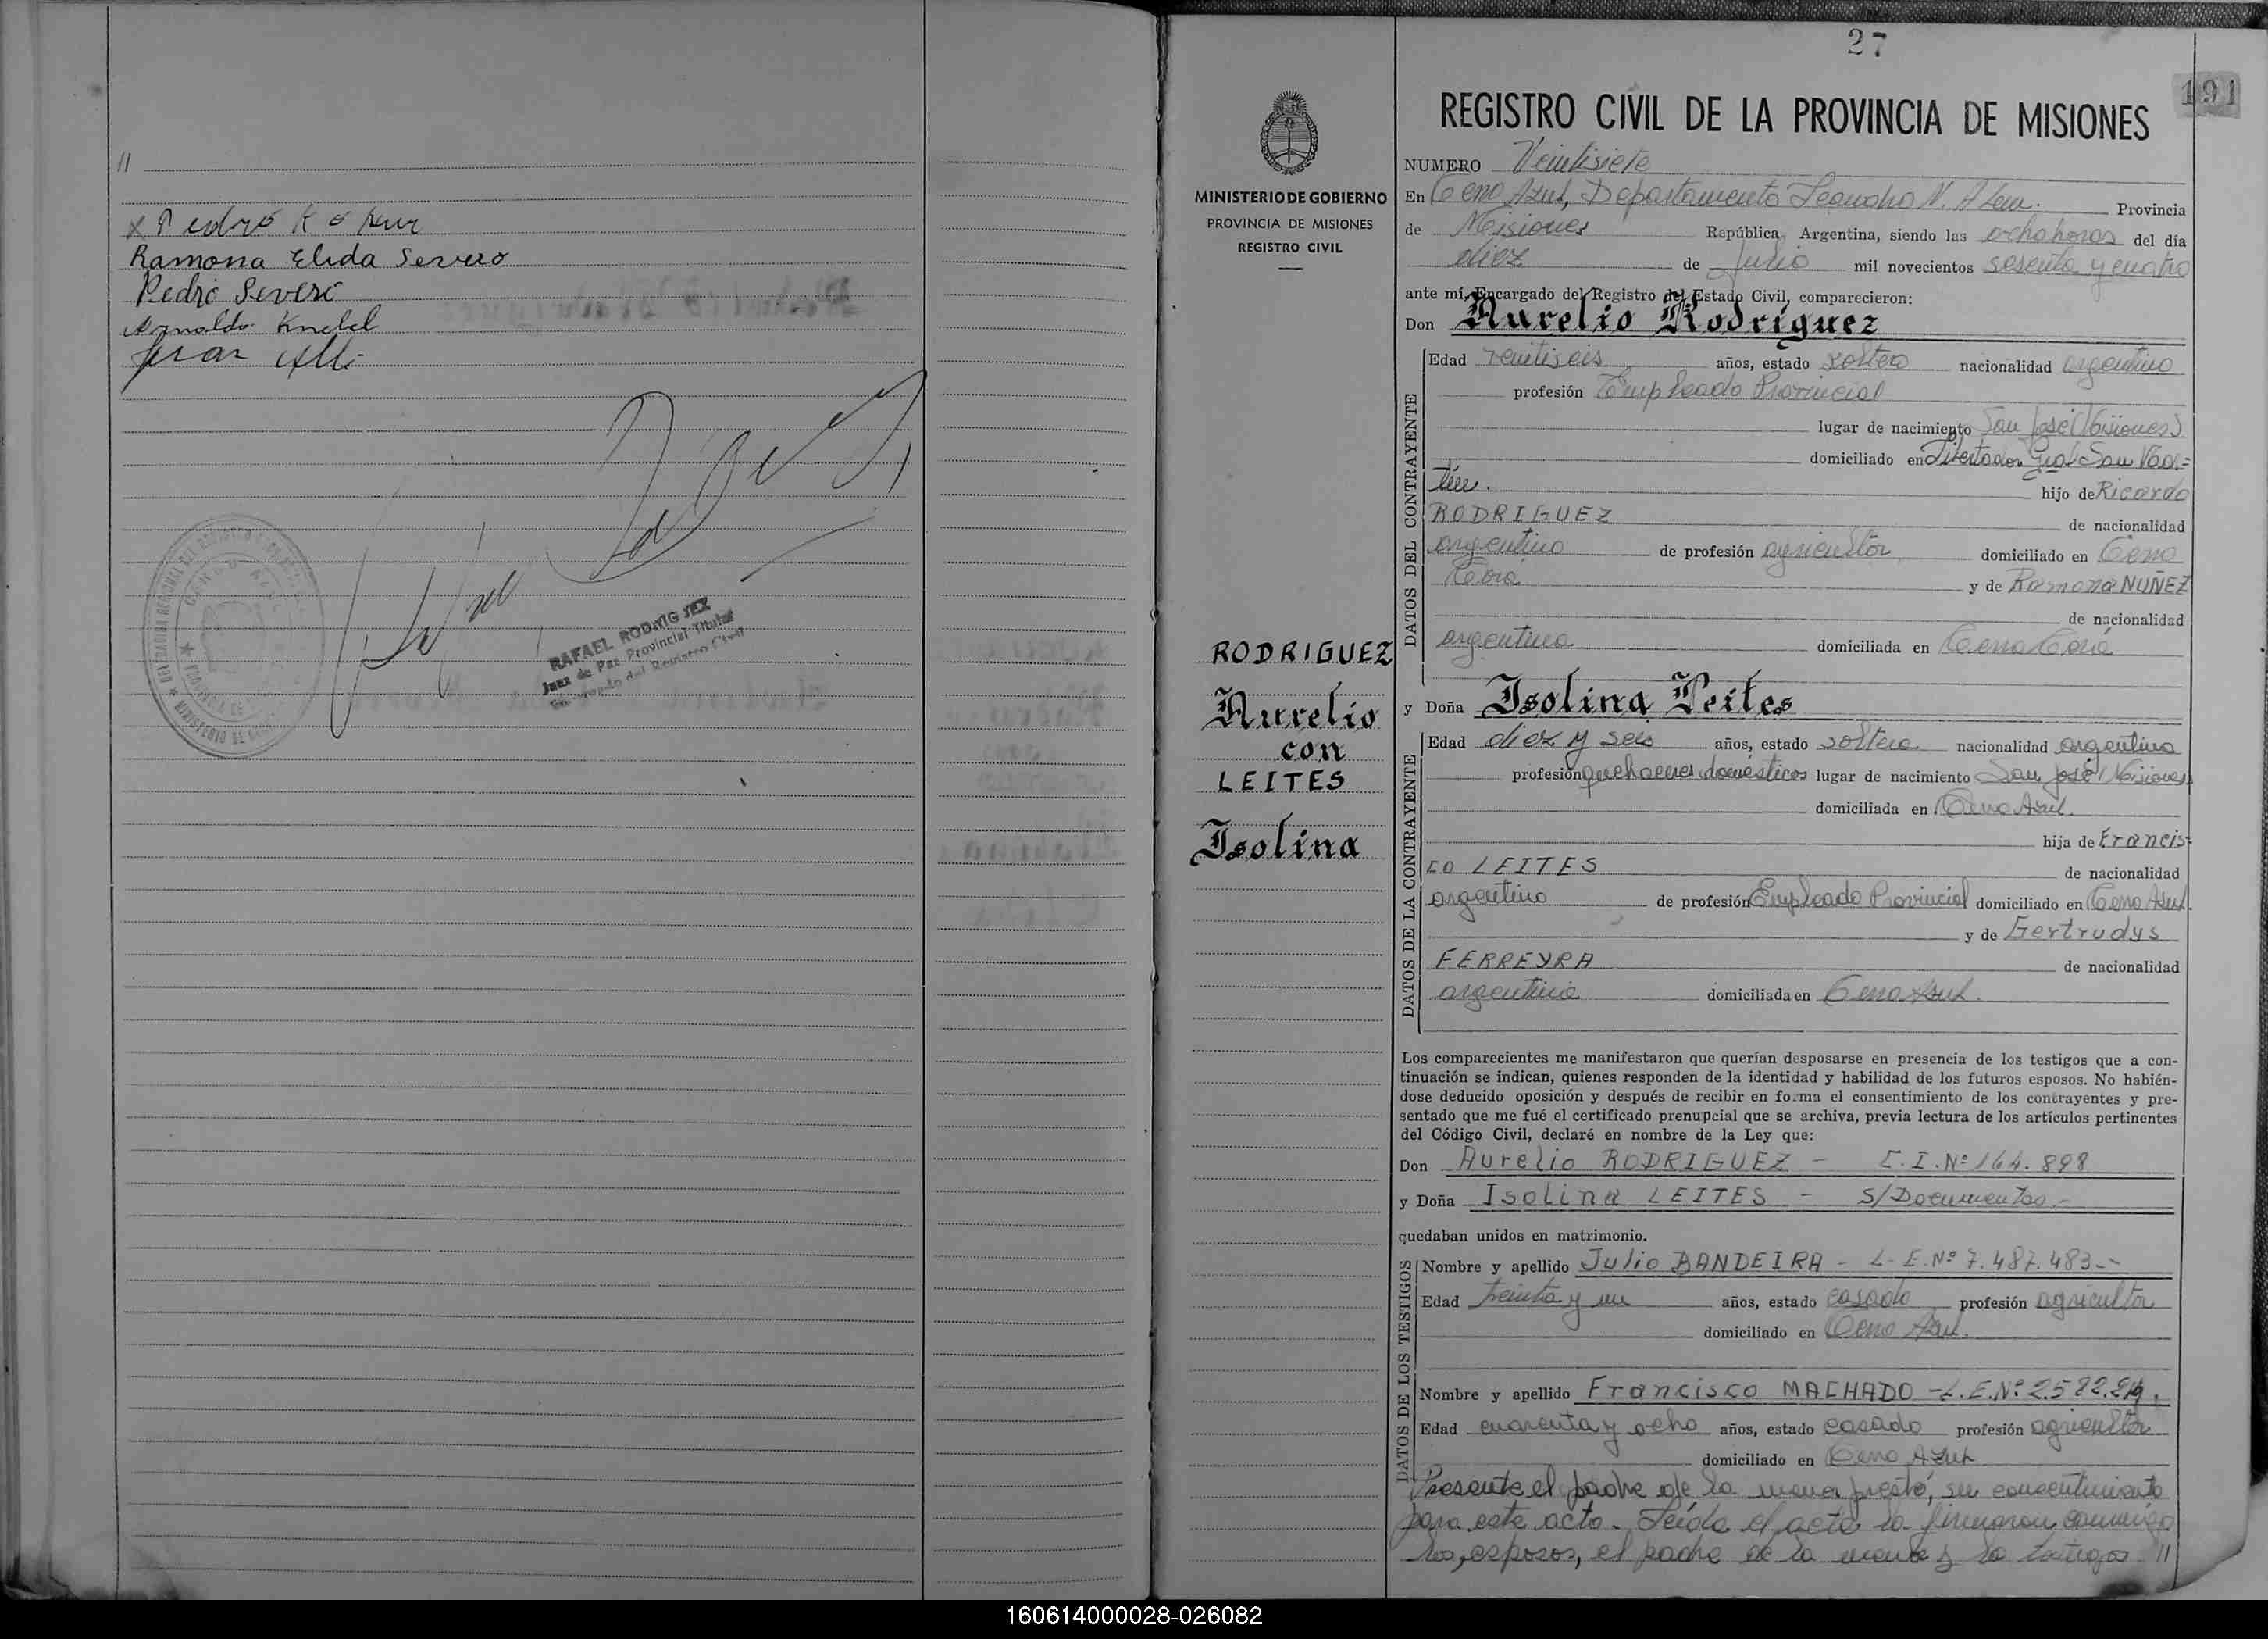 //
x Pedro Kokur
Ramona Elida Severo
Pedro Severo
Arnoldo Knebel
Juan
RAFAEL RODRIGUEZ
Juez de Paz Provincial Titular
Encargado del Registro Civil
MINISTERIO DE GOBIERNO
PROVINCIA DE MISIONES
REGISTRO CIVIL
RODRIGUEZ
Aurelio
con
LEITES
Isolina
27
191
REGISTRO CIVIL DE LA PROVINCIA DE MISIONES
NUMERO Veintisiete
En Cerro Azul, Departamento Leandro N. Alem. Provincia
de Misiones República Argentina, siendo las ocho horas del día
diez de Julio mil novecientos sesenta y cuatro
ante mí, Encargado del Registro del Estado Civil, comparecieron:
Don Aurelio Rodríguez
DATOS DEL CONTRAYENTE
Edad veintiseis años, estado soltero nacionalidad argentino
profesión Empleado Provincial
lugar de nacimiento San José (Misiones)
domiciliado en Libertador Gral San Mar=
tín. hijo de Ricardo
RODRIGUEZ de nacionalidad
argentino de profesión agricultor domiciliado en Cerro
Corá y de Ramona NUÑEZ
de nacionalidad
argentina domiciliada en Cerro Corá
y Doña Isolina Leites
DATOS DE LA CONTRAYENTE
Edad diez y seis años, estado soltera nacionalidad argentina
profesión quehaceres domésticos lugar de nacimiento San José (Misiones)
domiciliada en Cerro Azul.
hija de Francis-
co LEITES de nacionalidad
argentino de profesión Empleado Provincial domiciliado en Cerro Azul.
y de Gertrudys
FERREYRA de nacionalidad
argentina domiciliada en Cerro Azul.
Los comparecientes me manifestaron que querían desposarse en presencia de los testigos que a con-
tinuación se indican, quienes responden de la identidad y habilidad de los futuros esposos. No habién-
dose deducido oposición y después de recibir en forma el consentimiento de los contrayentes y pre-
sentado que me fué el certificado prenupcial que se archiva, previa lectura de los artículos pertinentes
del Código Civil, declaré en nombre de la Ley que:
Don Aurelio RODRIGUEZ - C.I.Nº 164.898
y Doña Isolina LEITES - S/Documentos.-
quedaban unidos en matrimonio.
DATOS DE LOS TESTIGOS
Nombre y apellido Julio BANDEIRA - L.E.Nº 7.487.483.-
Edad treinta y un años, estado casado profesión agricultor
domiciliado en Cerro Azul.
Nombre y apellido Francisco MACHADO - L.E.Nº
Edad cuarenta y ocho años, estado casado profesión agricultor
domiciliado en Cerro Azul
Presente el padre de la menor prestó, su consentimiento
para este acto. Leída el acta la firmaron conmigo
los esposos, el padre de la menor y lo testigos //
160614000028-026082